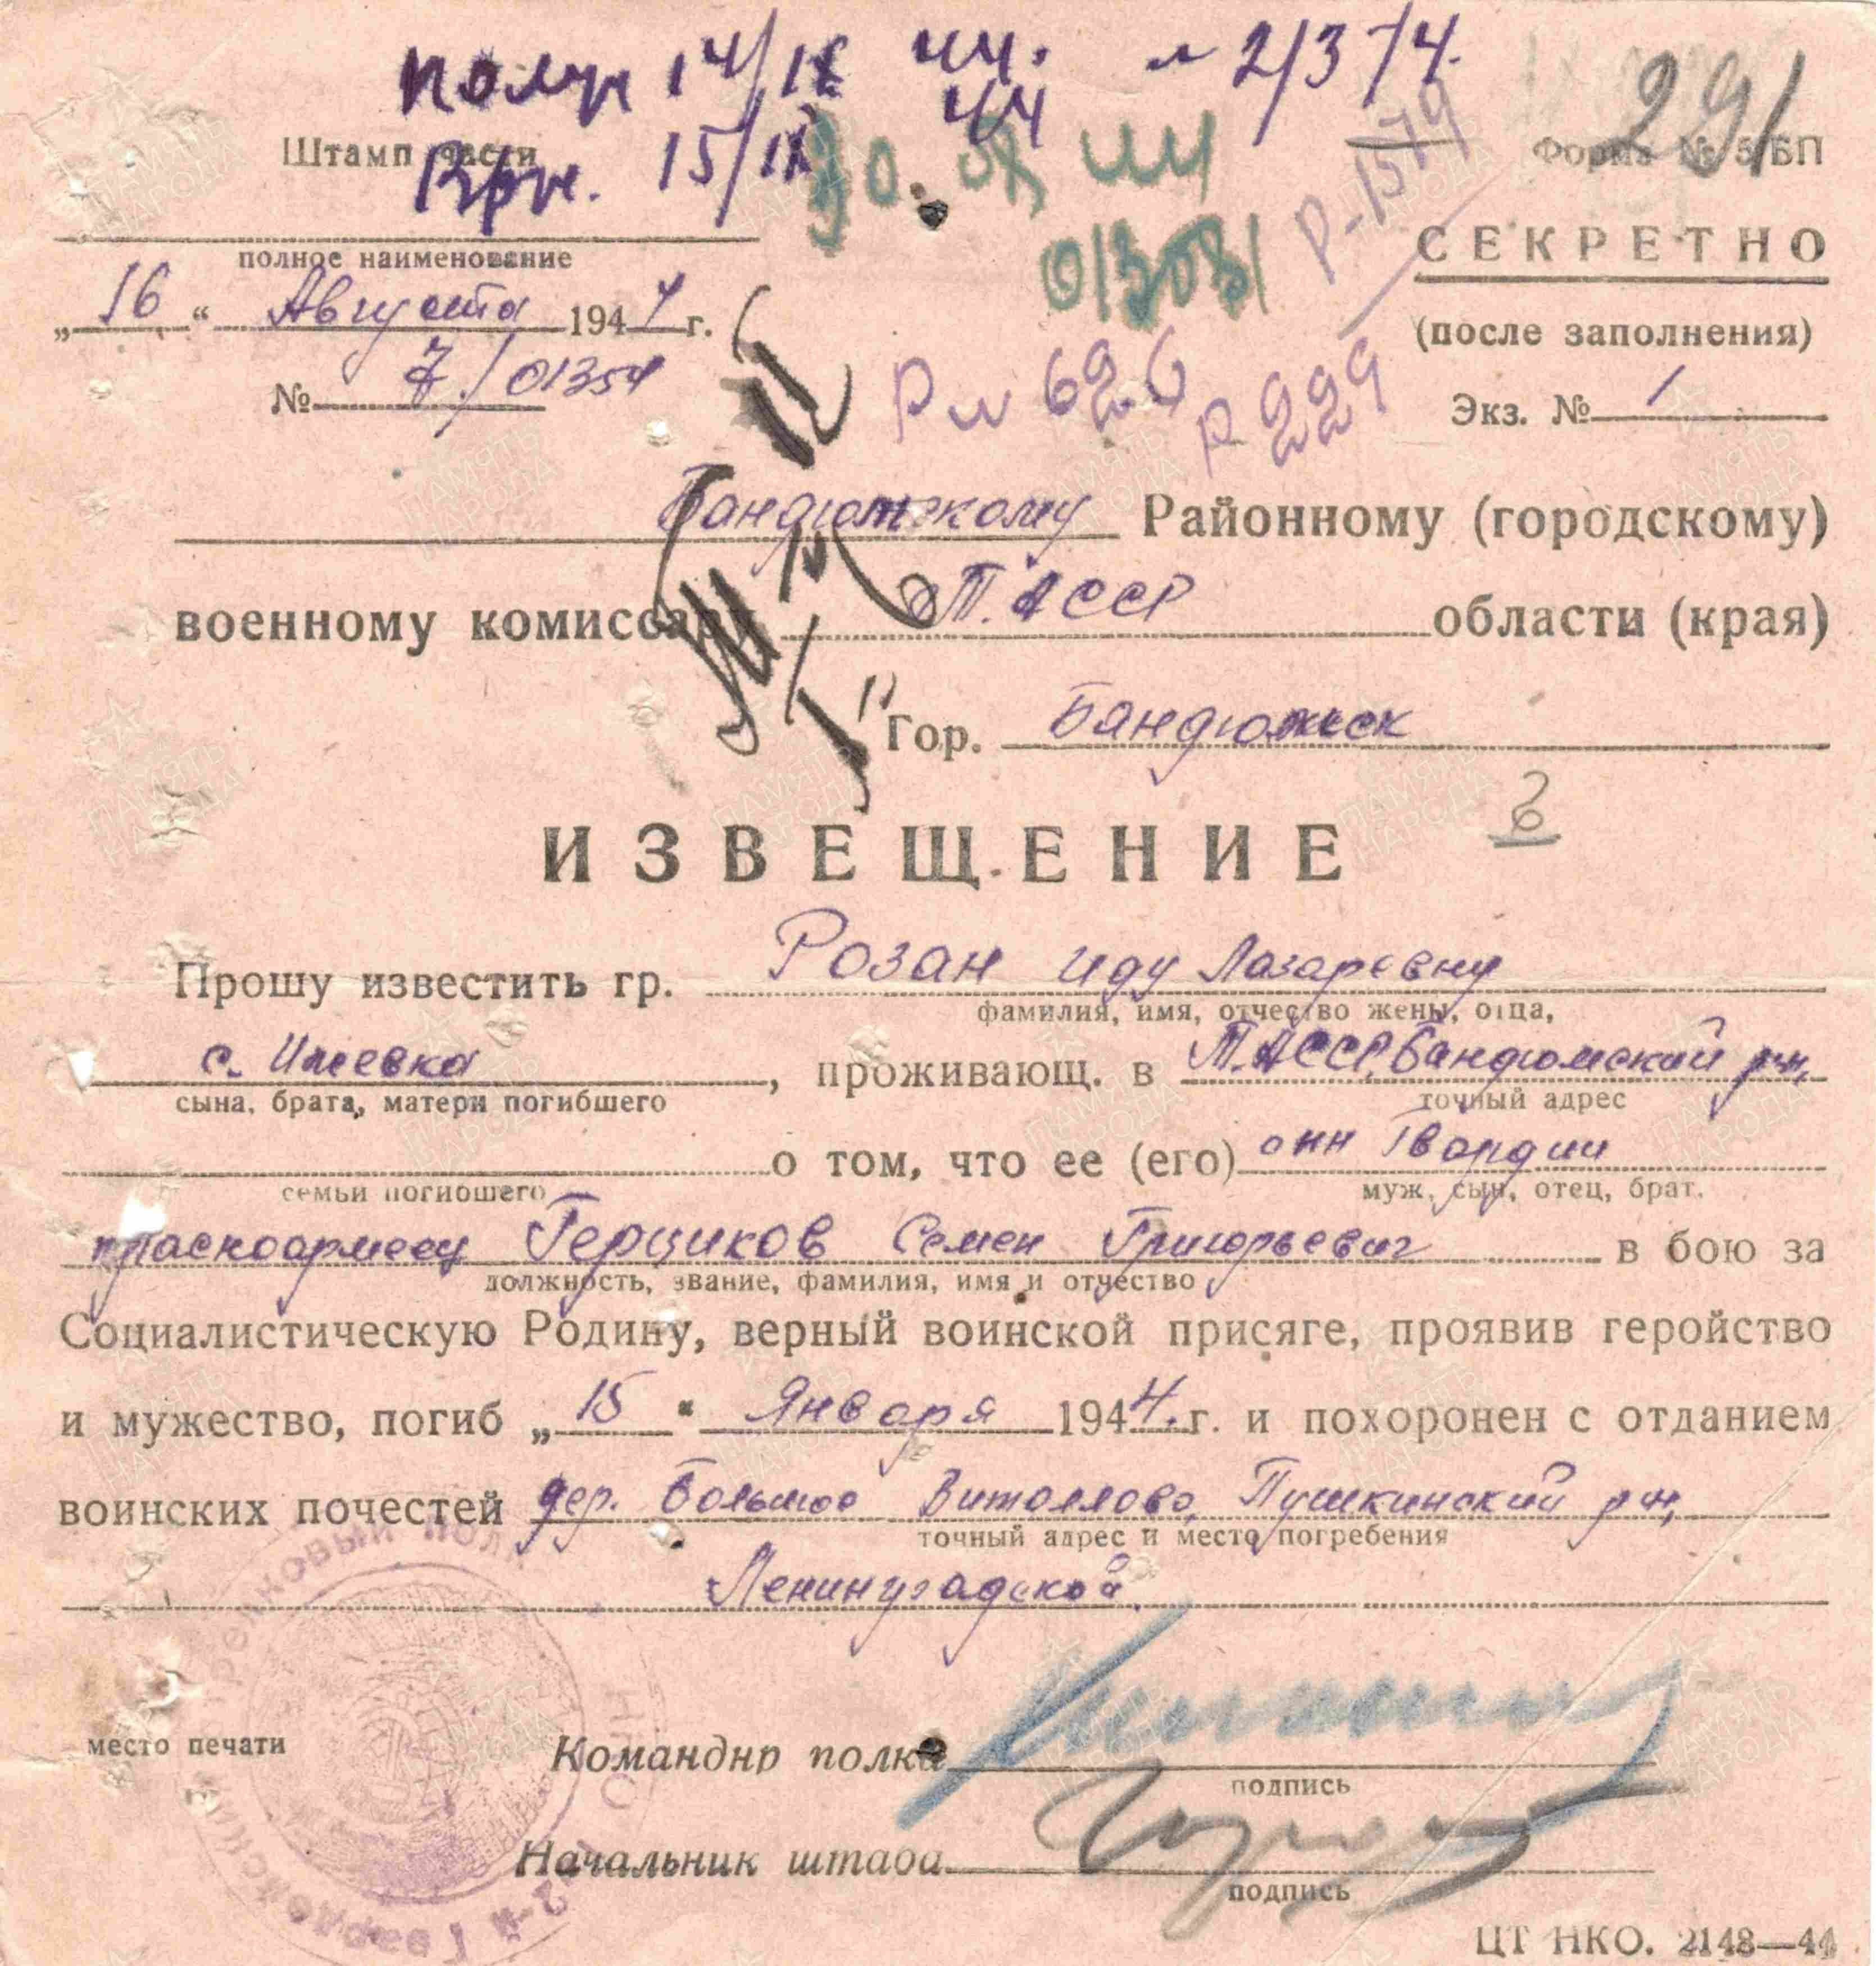 получ 14/IX 44. № 2/374.
Штамп части
15/IX 44
30. IX 44
Р-1579
291
Форма № 5/БП
013031
СЕКРЕТНО
полное наименование
„16“ Августа 1944 г.
(после заполнения)
№ 7/01354
Р № 626
Р 229
Экз. № 1
Бандюжскому Районному (городскому)
военному комиссару Т.АССР области (края)
Гор. Бандюжск
6
ИЗВЕЩЕНИЕ
Прошу известить гр. Розан Иду Лазаревну
фамилия, имя, отчество жены, отца,
с. Ижевка, проживающ. в Т.АССР, Бандюжский р-н,
сына, брата, матери погибшего
точный адрес
о том, что ее (его) сын Гвардии
семьи погибшего
муж, сын, отец, брат.
красноармеец Герциков Семен Григорьевич в бою за
должность, звание, фамилия, имя и отчество
Социалистическую Родину, верный воинской присяге, проявив геройство
и мужество, погиб „15“ Января 1944 г. и похоронен с отданием
воинских почестей дер. Большое Виттолово, Пушкинский р-н,
точный адрес и место погребения
Ленинградской
место печати
Командир полка
подпись
Начальник штаба
подпись
ЦТ НКО. 2148—44